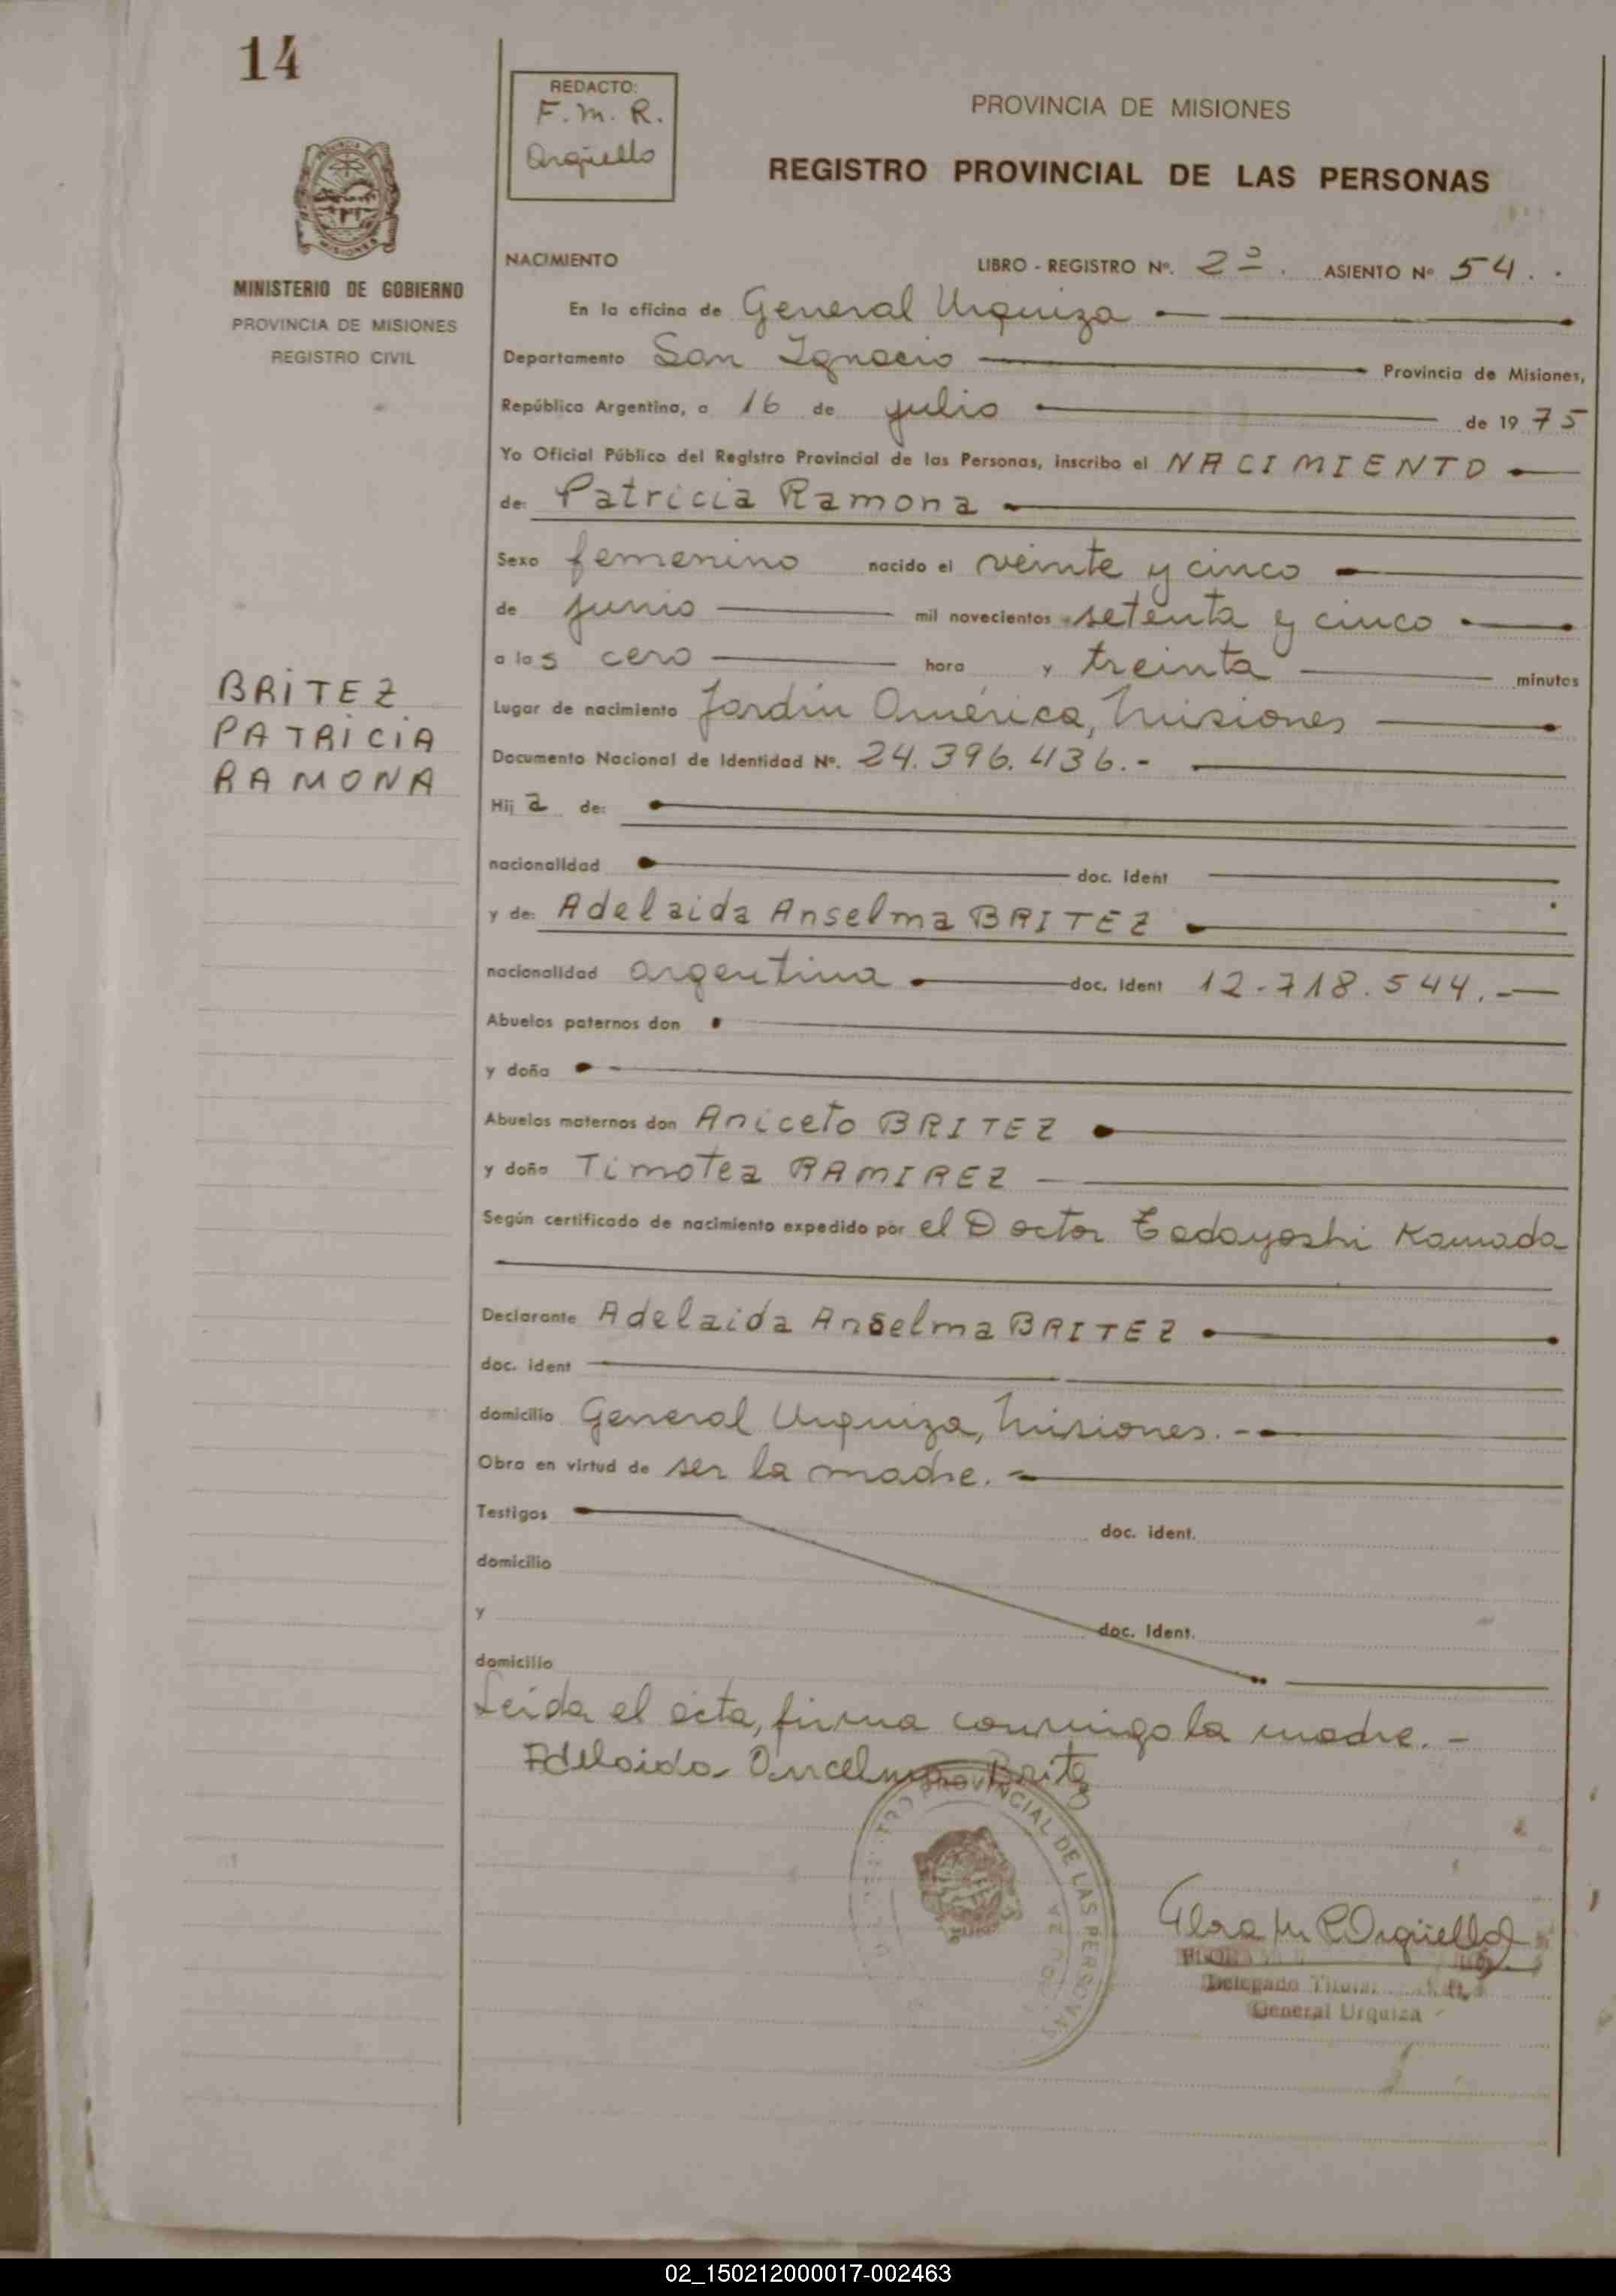 14
REDACTO:
F. M. R.
Argüello
PROVINCIA DE MISIONES
REGISTRO PROVINCIAL DE LAS PERSONAS
MINISTERIO DE GOBIERNO
PROVINCIA DE MISIONES
REGISTRO CIVIL
NACIMIENTO LIBRO - REGISTRO Nº. 2º. ASIENTO Nº 54.
En la oficina de General Urquiza
Departamento San Ignacio Provincia de Misiones,
República Argentina, a 16 de julio de 1975
Yo Oficial Público del Registro Provincial de las Personas, inscribo el NACIMIENTO
de: Patricia Ramona
Sexo femenino nacido el veinte y cinco
de junio mil novecientos setenta y cinco
a las cero hora y treinta minutos
BRITEZ
PATRICIA
RAMONA
Lugar de nacimiento Jardín América, Misiones
Documento Nacional de Identidad Nº. 24.396.436.-
Hija de:
nacionalidad doc. ident
y de: Adelaida Anselma BRITEZ
nacionalidad argentina doc. ident 12.718.544.-
Abuelos paternos don
y doña
Abuelos maternos don Aniceto BRITEZ
y doña Timotea RAMIREZ
Según certificado de nacimiento expedido por el Doctor Tadayoshi Kamada
Declarante Adelaida Anselma BRITEZ
doc. ident
domicilio General Urquiza, Misiones.-
Obra en virtud de ser la madre.-
Testigos doc. ident.
domicilio
y doc. ident.
domicilio
Leida el acta, firma conmigo la madre.-
Adelaida Ancelma Britez
PROVINCIAL DE LAS PERSONAS
Argüello
Delegado Titular
General Urquiza
02_150212000017-002463